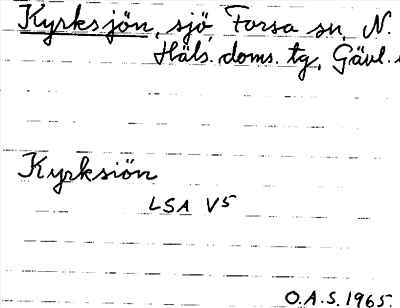 Kyrksjön, sjö, Forsa sn, N.
Häls. doms. tg, Gävl.
Kyrksiön
LSA V5
O.A.S. 1965.